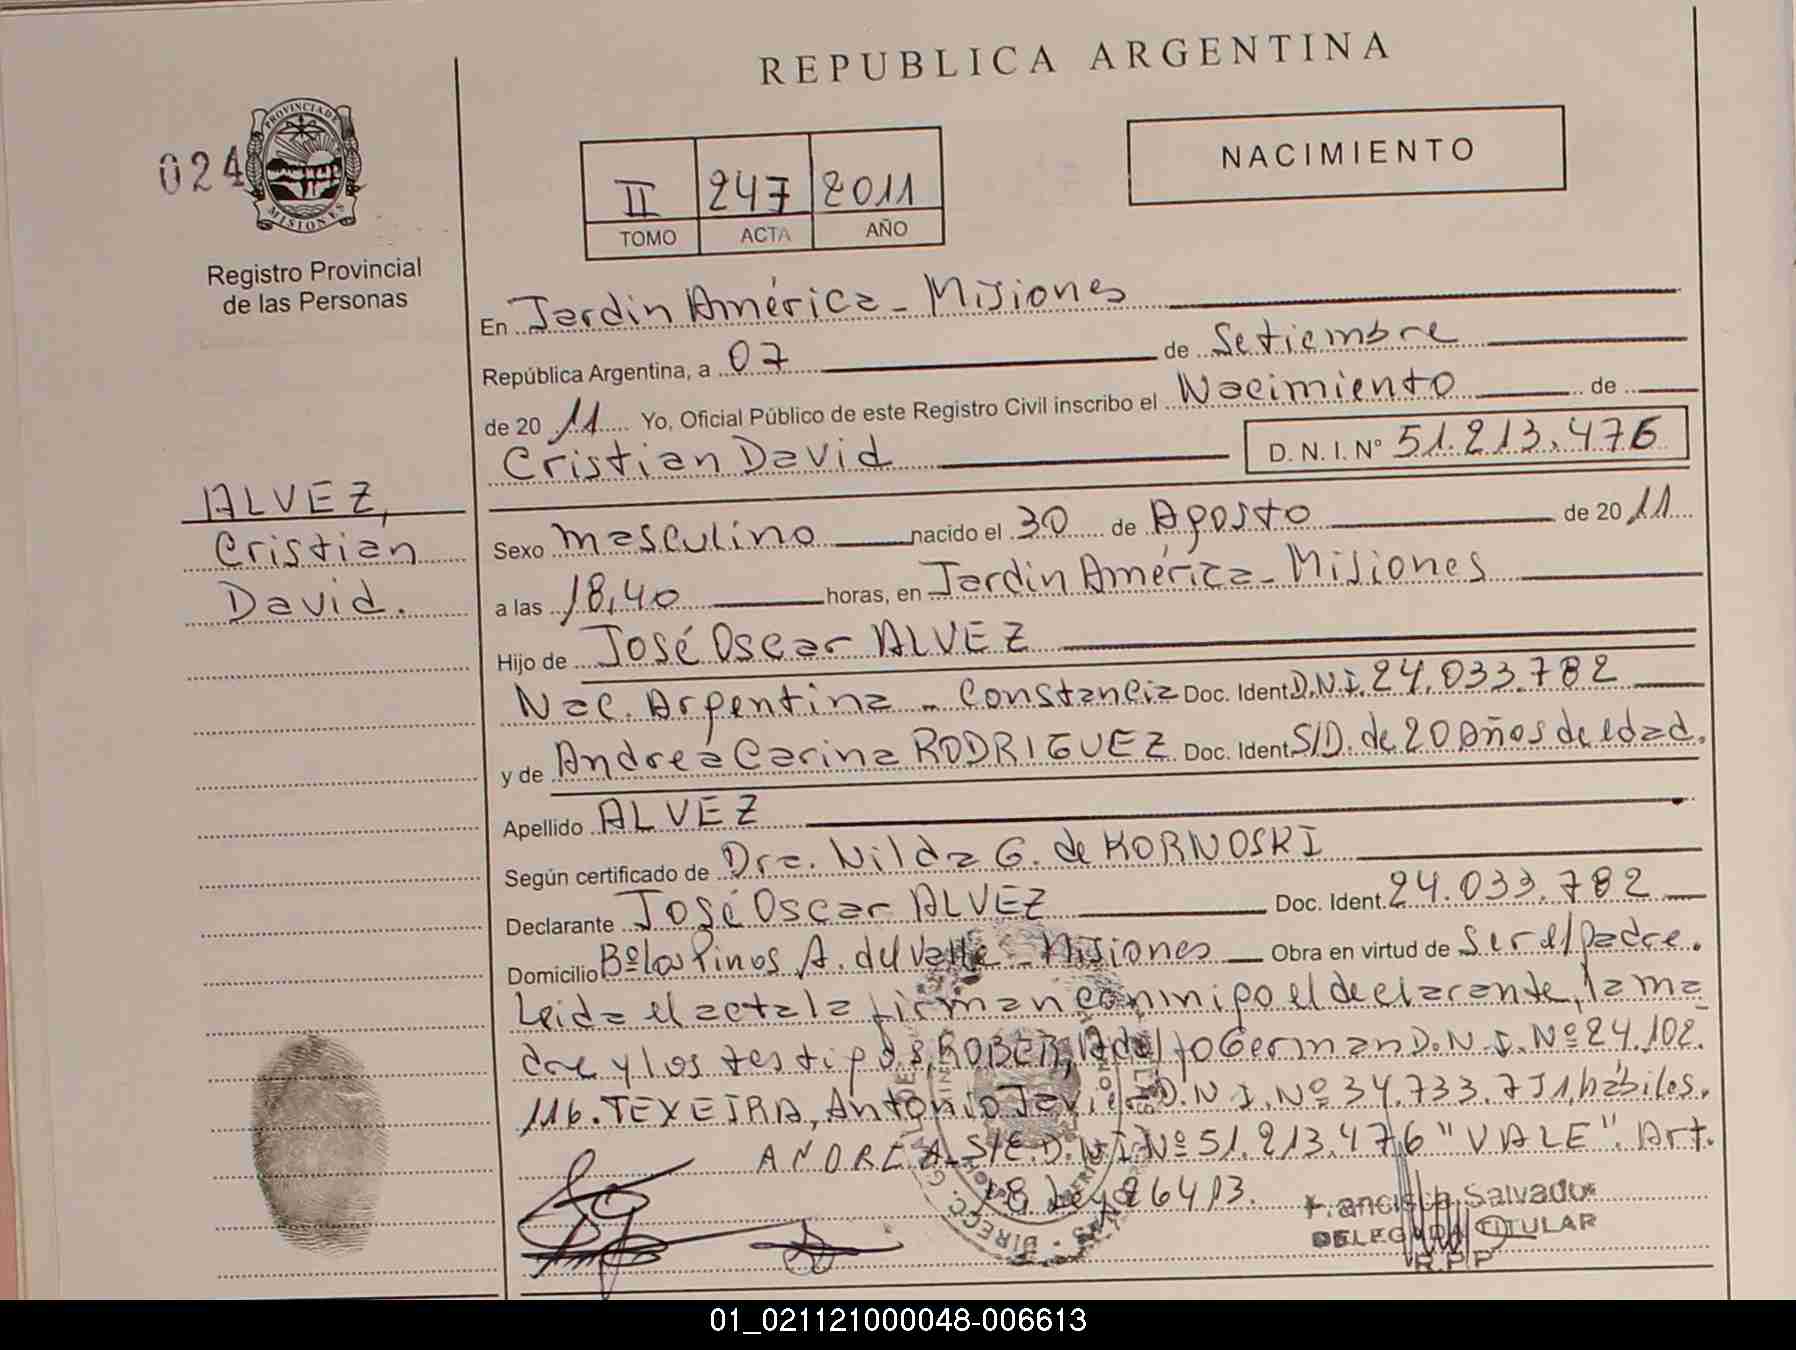 REPUBLICA ARGENTINA
024
PROVINCIA DE
MISIONES
Registro Provincial
de las Personas
II 247 2011
TOMO ACTA AÑO
NACIMIENTO
En Jardin América - Misiones
República Argentina, a 07 de Setiembre
de 20 11 Yo, Oficial Público de este Registro Civil inscribo el Nacimiento de
Cristian David D. N. I. Nº 51.213.476
ALVEZ,
Cristian
David.
Sexo masculino nacido el 30 de Agosto de 20 11
a las 18,40 horas, en Jardin América - Misiones
Hijo de José Oscar ALVEZ
Nac. Argentina - Constancia Doc. Ident D.N.I. 24.033.782
y de Andrea Carina RODRIGUEZ Doc. Ident S/D. de 20 Años de edad.
Apellido ALVEZ
Según certificado de Dra. Nilda G. de KORNOSKI
Declarante José Oscar ALVEZ Doc. Ident. 24.033.782
Domicilio Bº los Pinos A. del Valle - Misiones Obra en virtud de Ser el padre.
Leida el acta la firman conmigo el declarante, la ma
dre y los testigos, Adolfo German D.N.I. Nº 24.102.
116. TEXEIRA, Antonio Javier D.N.I. Nº 34.733.751, hábiles.
ANDREA S/E. D.N.I. Nº 51.213.476 "VALE". Art.
18 Ley 26413.
Salvador
DELEGADA TITULAR
R.P.P
01_021121000048-006613